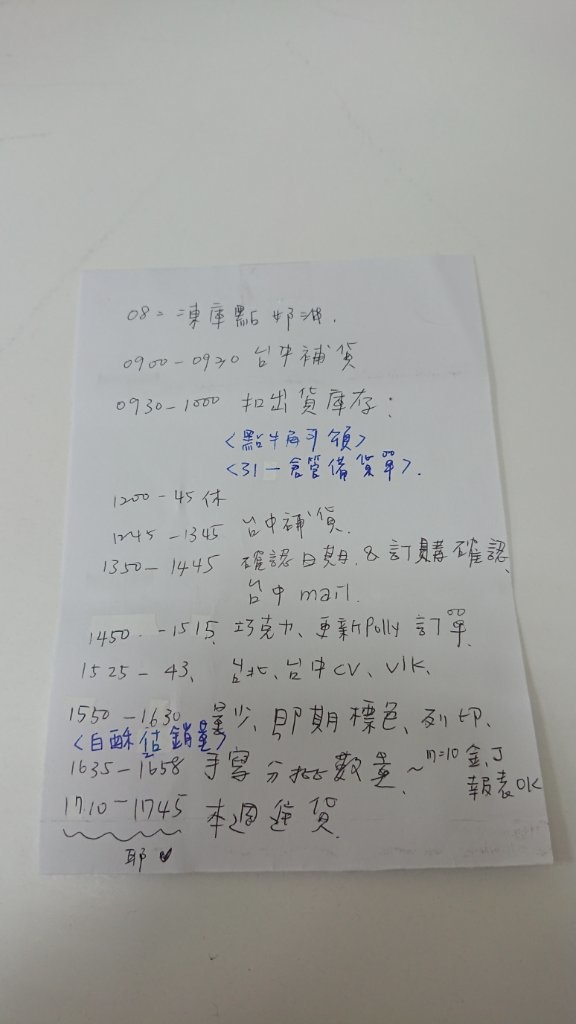 08: 凍庫點奶油.
0900-0930 台中補貨
0930-1000 扣出貨庫存:
<點牛角可頌>
<31-倉管備貨單>.
1200-45 休
1245-1345 台中補貨.
1350-1445 確認日期.&訂購確認、
台中 mail.
1450--1515、巧克力、更新Polly訂單.
1525-43、台北、台中CV、VIK.
1550-1630 量少、即期標色、列印、
<白酥估銷量>
1635-1658 手寫分批數量.~17=10 金.J
報表OK
17.10-1745 本週進貨.
耶♥